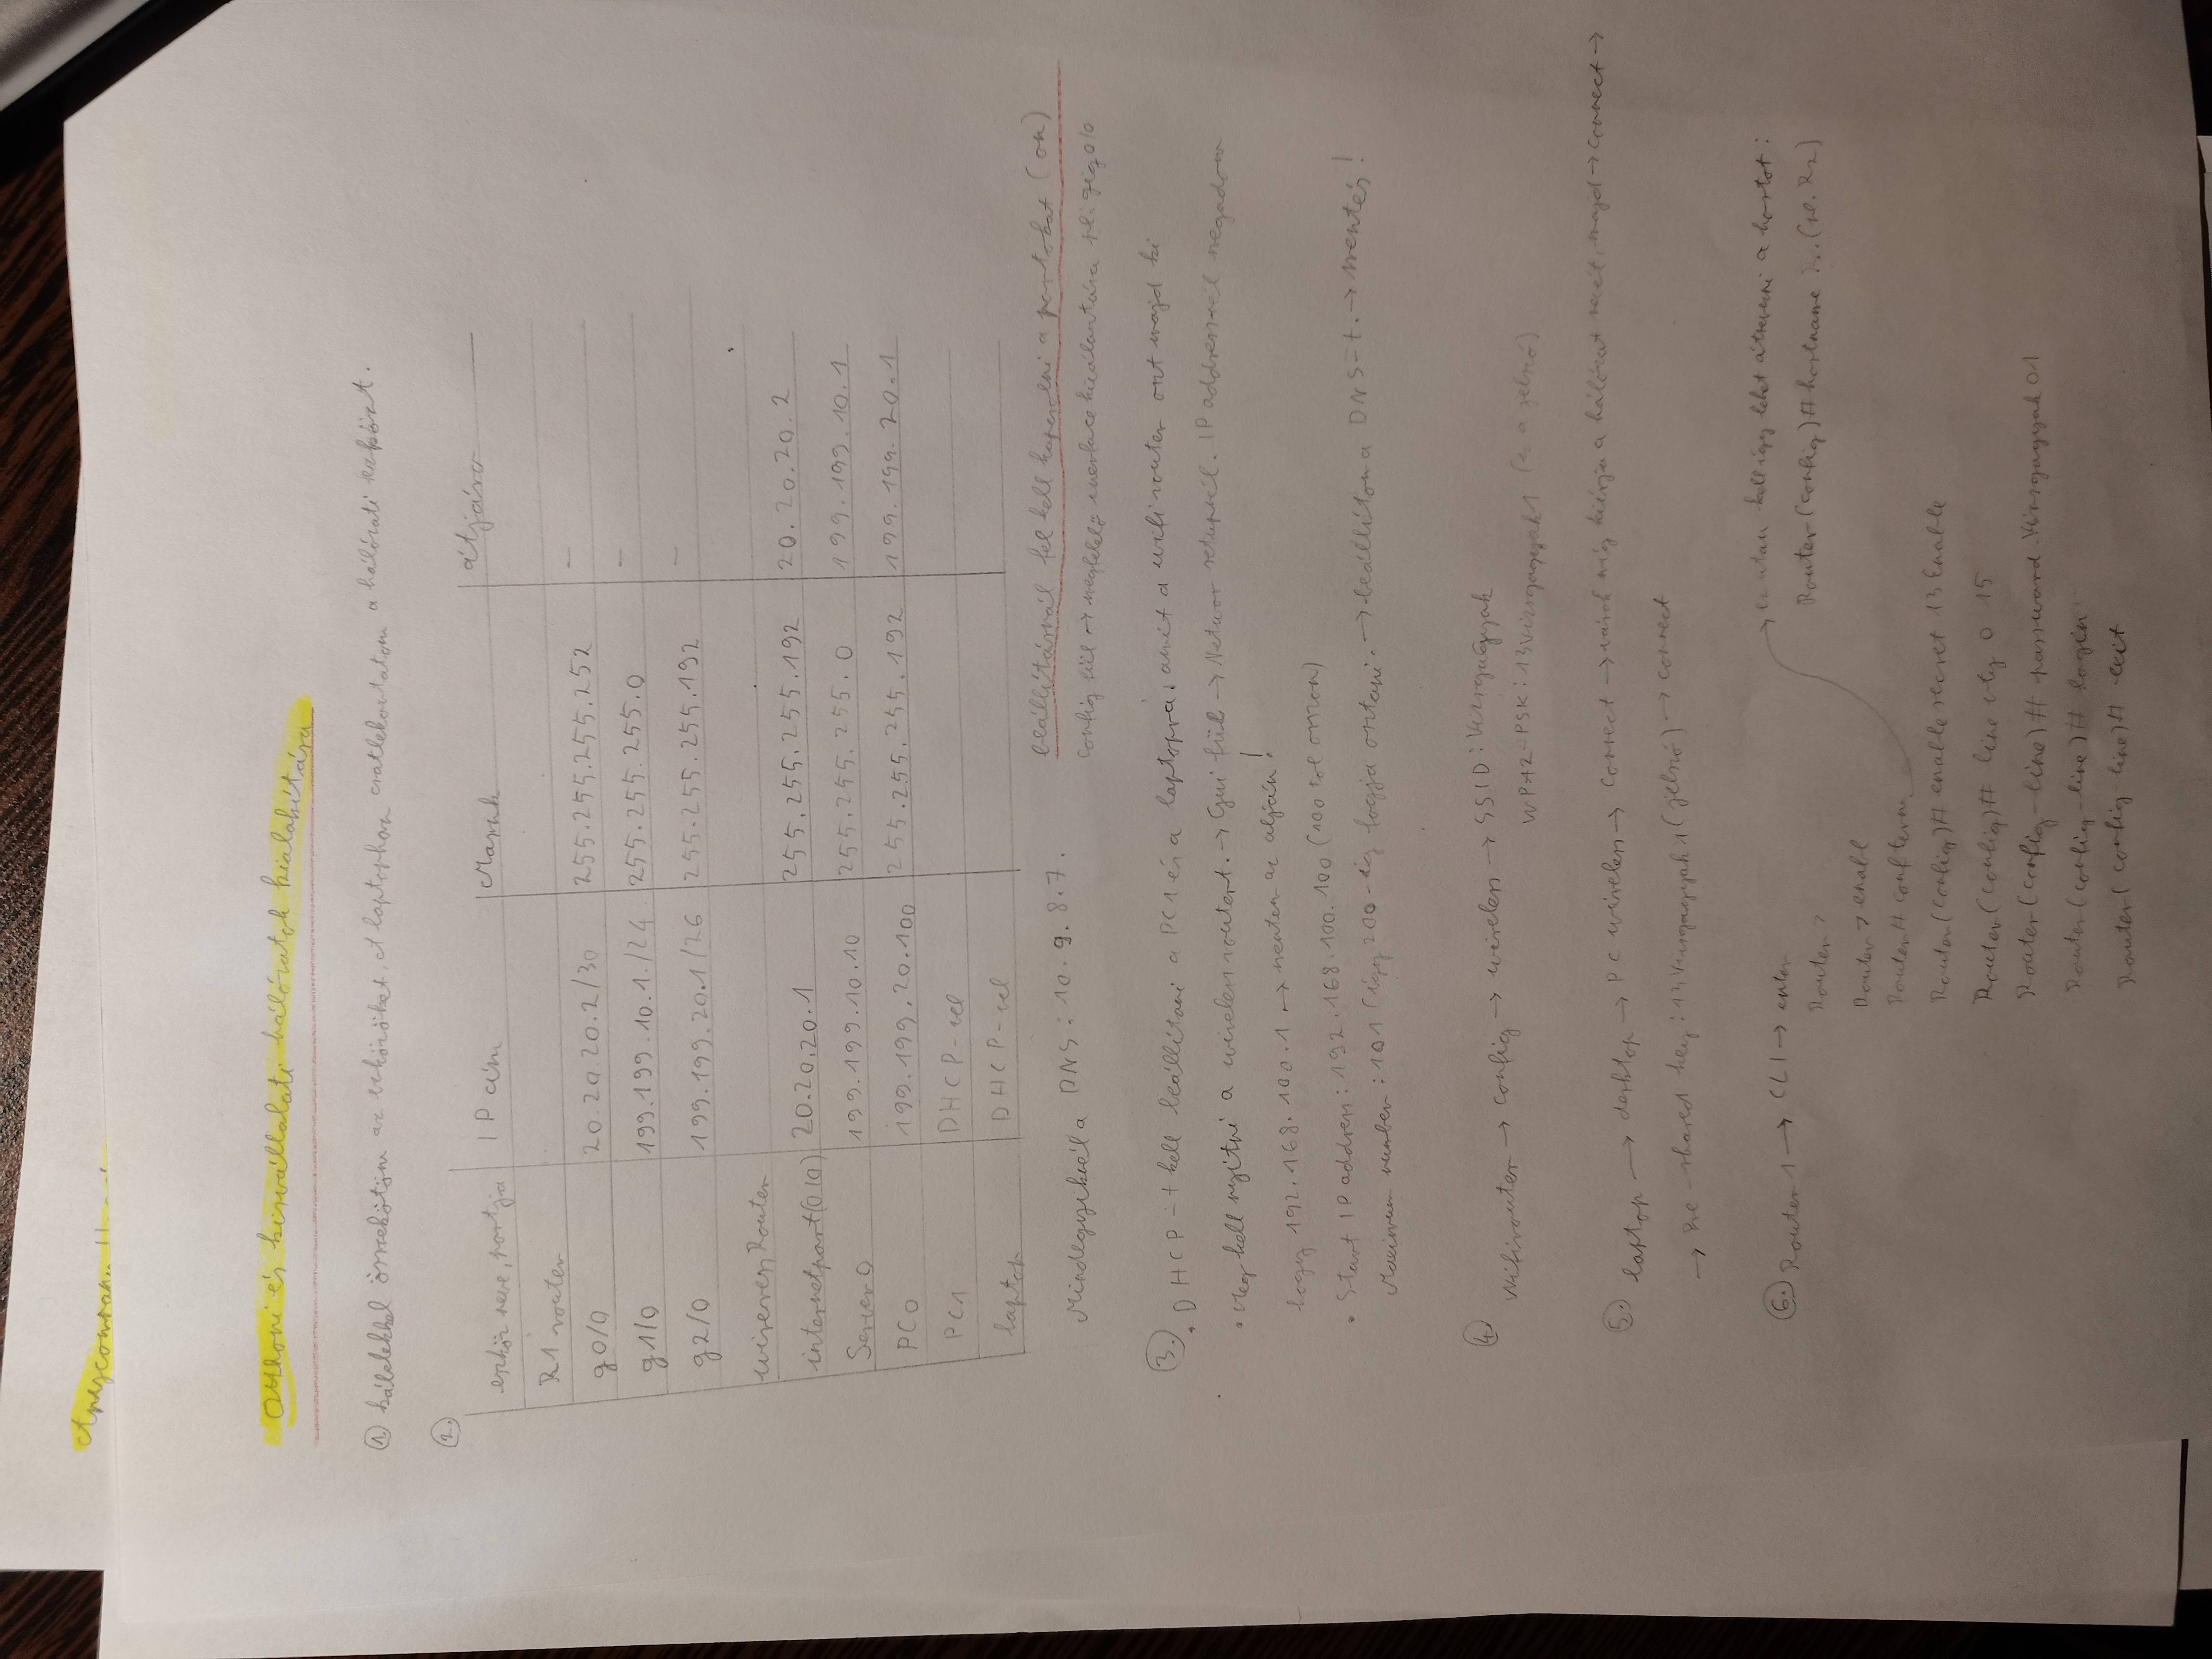 Otthoni és kisvállalati hálózatok kialakítása
1. kábelekkel összekötöm az eszközöket. A laptophoz csatlakoztatom a hálózati eszközt.
2.
eszköz neve, portja | IP cím | Maszk | átjáró
R1 router
g0/0 | 20.20.20.2/30 | 255.255.255.252 | -
g1/0 | 199.199.10.1./24 | 255.255.255.0 | -
g2/0 | 199.199.20.1/26 | 255.255.255.192 | -
Router
internetport(0/0) | 20.20.20.1 | 255.255.255.192 | 20.20.20.2
Server0 | 199.199.10.10 | 255.255.255.0 | 199.199.10.1
PC0 | 199.199.20.100 | 255.255.255.192 | 199.199.20.1
PC1 | DHCP-vel
laptop | DHCP-vel
Mindegyiknél a DNS: 10.9.8.7.
beállításnál fel kell kapcsolni a portokat (on)
config fül → megfelelő kiválasztása pl: gig0/0
3.
• DHCP-t kell beállítani a PC1 és a laptopra, amit a wifirouter oszt majd ki
• Meg kell nyitni a wireless routert. → Gui fül → Networ setupnál. IP addressnél megadom
hogy 192.168.100.1 → mentem az alján!
• Start IP address: 192.168.100.100 (100 tól osszon)
Maximum number: 101 (így 200-ig fogja osztani. → beállítom a DNS-t. → mentés!
4. Wifirouter → config → wireless → SSID: Vizsgaügyak
WPA2-PSK: 13Vizsgaagyak1 (ez a jelszó)
5. laptop → desktop → PC wireless → connect → várok míg kiírja a hálózat nevét, majd → connect →
→ Pre-shared key: 13Vizsgaagyak1 (jelszó) → connect
6. Router 1 → CLI → enter
Router >
Router > enabl
Router# conf term
→ ezután kell így lehet átnevezni a hostot:
Router(config)# hostname ... (pl. R2)
Router(config)# enable secret 13Enable
Router(config)# line vty 0 15
Router(config-line)# password Vizsgaagyak01
Router(config-line)# login
Router(config-line)# exit